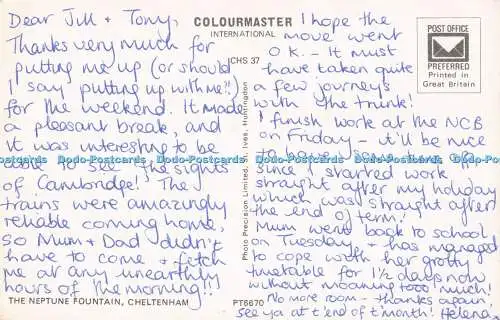 Dear Jill + Tony,
Thanks very much for
putting me up (or should
I say putting up with me!!)
for the weekend. It made
a pleasant break, and
it was interesting to be
able to see the sights
of Cambridge! The
trains were amazingly
reliable coming home,
so Mum + Dad didn't
have to come + fetch
me at any unearthly
hours of the morning!!
THE NEPTUNE FOUNTAIN, CHELTENHAM
COLOURMASTER
INTERNATIONAL
CHS 37
Photo Precision Limited, St. Ives, Huntingdon
PT6670
I hope the
move went
O.K. - it must
have taken quite
a few journeys
with the trunk!
I finish work at the NCB
on Friday - it'll be nice
to have
since I started work
straight after my holiday
which was straight after
the end of term!
Mum went back to school
on Tuesday + has managed
to cope with her grotty
timetable for 1½ days now
without moaning too much!
No more room - thanks again,
see ya at t'end of t'month! Helena.
POST OFFICE
PREFERRED
Printed in
Great Britain
Dodo-Postcards Dodo-Postcards Dodo-Postcards Dodo-Postcards Dodo-Postcards Dodo-Postcards
Dodo-Postcards